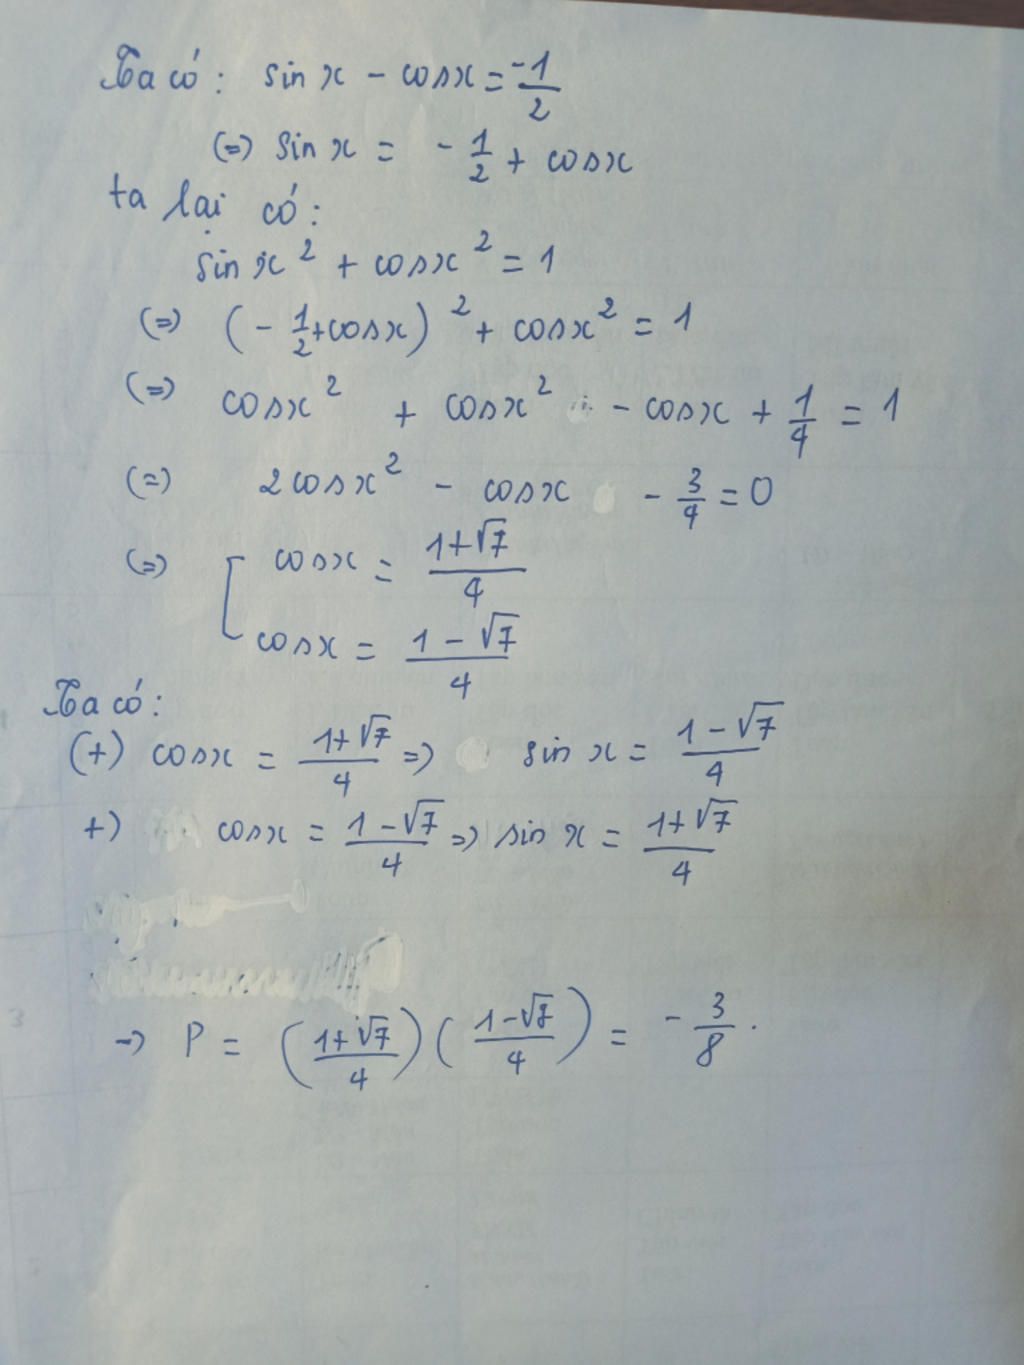 Ta có: sin x - cosx = -1/2
(=) sin x = -1/2 + cosx
ta lại có:
sin x² + cosx² = 1
(=) (-1/2+cosx)² + cosx² = 1
(=) cosx² + cosx² - cosx + 1/4 = 1
(=) 2cosx² - cosx - 3/4 = 0
(=) [ cosx = (1+√7)/4
cosx = (1-√7)/4
Ta có:
(+) cosx = (1+√7)/4 => sin x = (1-√7)/4
+) cosx = (1-√7)/4 => sin x = (1+√7)/4
-> P = ((1+√7)/4)((1-√7)/4) = -3/8.